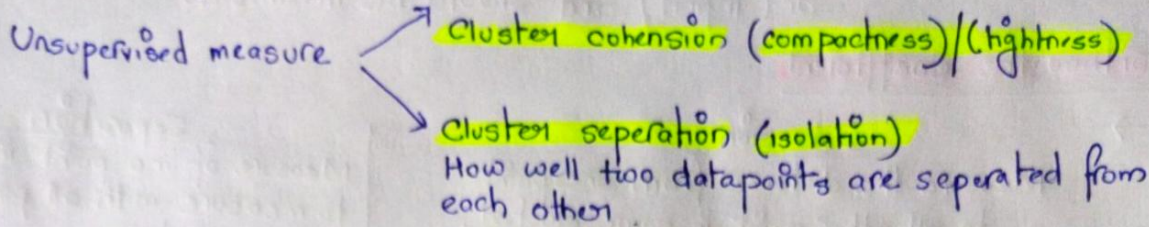 Unsupervised measure
Cluster cohension (compactness)/(tightness)
Cluster seperation (isolation)
How well two datapoints are seperated from
each other